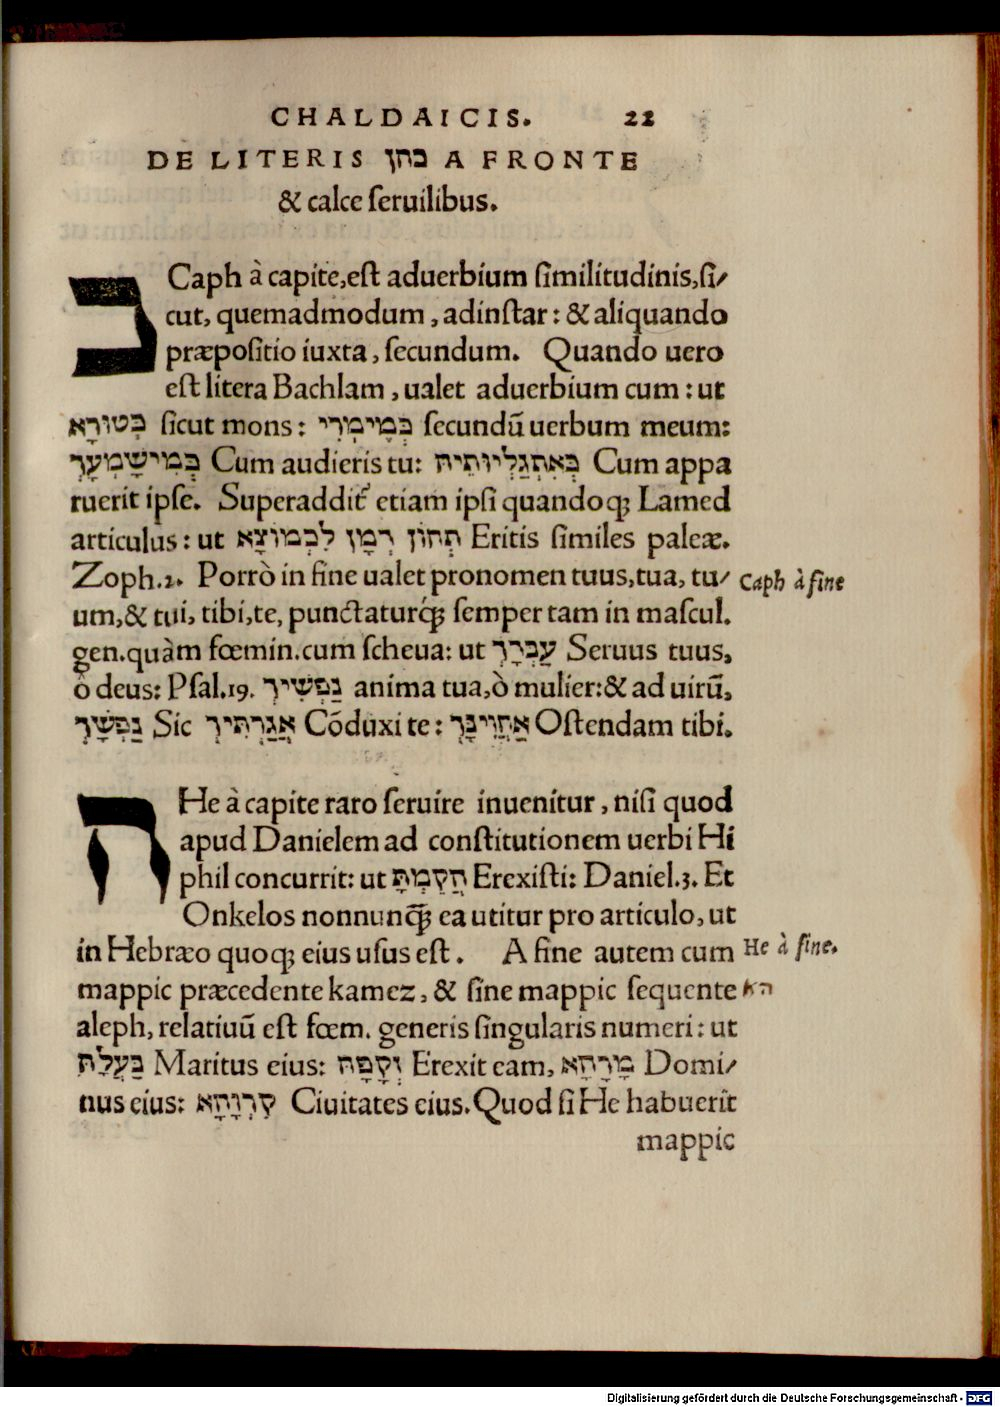 CHALDAICIS. 22
DE LITERIS כהן A FRONTE
& calce seruilibus.
כ Caph à capite, est aduerbium similitudinis, si/
cut, quemadmodum, adinstar: & aliquando
præpositio iuxta, secundum. Quando uero
est litera Bachlam, ualet aduerbium cum: ut
כְּטוּרָא sicut mons: כְּמֵימְרִי secundũ uerbum meum:
כְּמִישָׁמְעָךְ Cum audieris tu: כְּאִתְגַלְיוּתֵיהּ Cum appa
ruerit ipse. Superaddit᷑ etiam ipsi quandoq; Lamed
articulus: ut תְּהוֹן רְמָן לִכְמוֹצָא Eritis similes paleæ.
Zoph.2. Porrò in fine ualet pronomen tuus, tua, tu/ Caph à fine
um, & tui, tibi, te, punctaturq́; semper tam in mascul.
gen. quàm fœmin. cum scheua: ut עַבְדָךְ Seruus tuus,
ò deus: Psal.19. נַפְשִׁיךְ anima tua, ò mulier: & ad uirũ,
נַפְשָׁךְ Sic אֲגַרְתִּיךְ Cõduxi te: אַחֲוִינָּךְ Ostendam tibi.
ה He à capite raro seruire inuenitur, nisi quod
apud Danielem ad constitutionem uerbi Hi
phil concurrit: ut הֲקֵמְתָּ Erexisti: Daniel.3. Et
Onkelos nonnunq̃; ea utitur pro articulo, ut
in Hebræo quoq; eius usus est. A fine autem cum He à fine.
mappic præcedente kamez, & sine mappic sequente הא
aleph, relatiuũ est fœm. generis singularis numeri: ut
בַּעֲלַהּ Maritus eius: וְקָמָהּ Erexit eam, מָרָהָא Domi/
nus eius: קִרְוָהָא Ciuitates eius. Quod si He habuerit
mappic
Digitalisierung gefördert durch die Deutsche Forschungsgemeinschaft - DFG